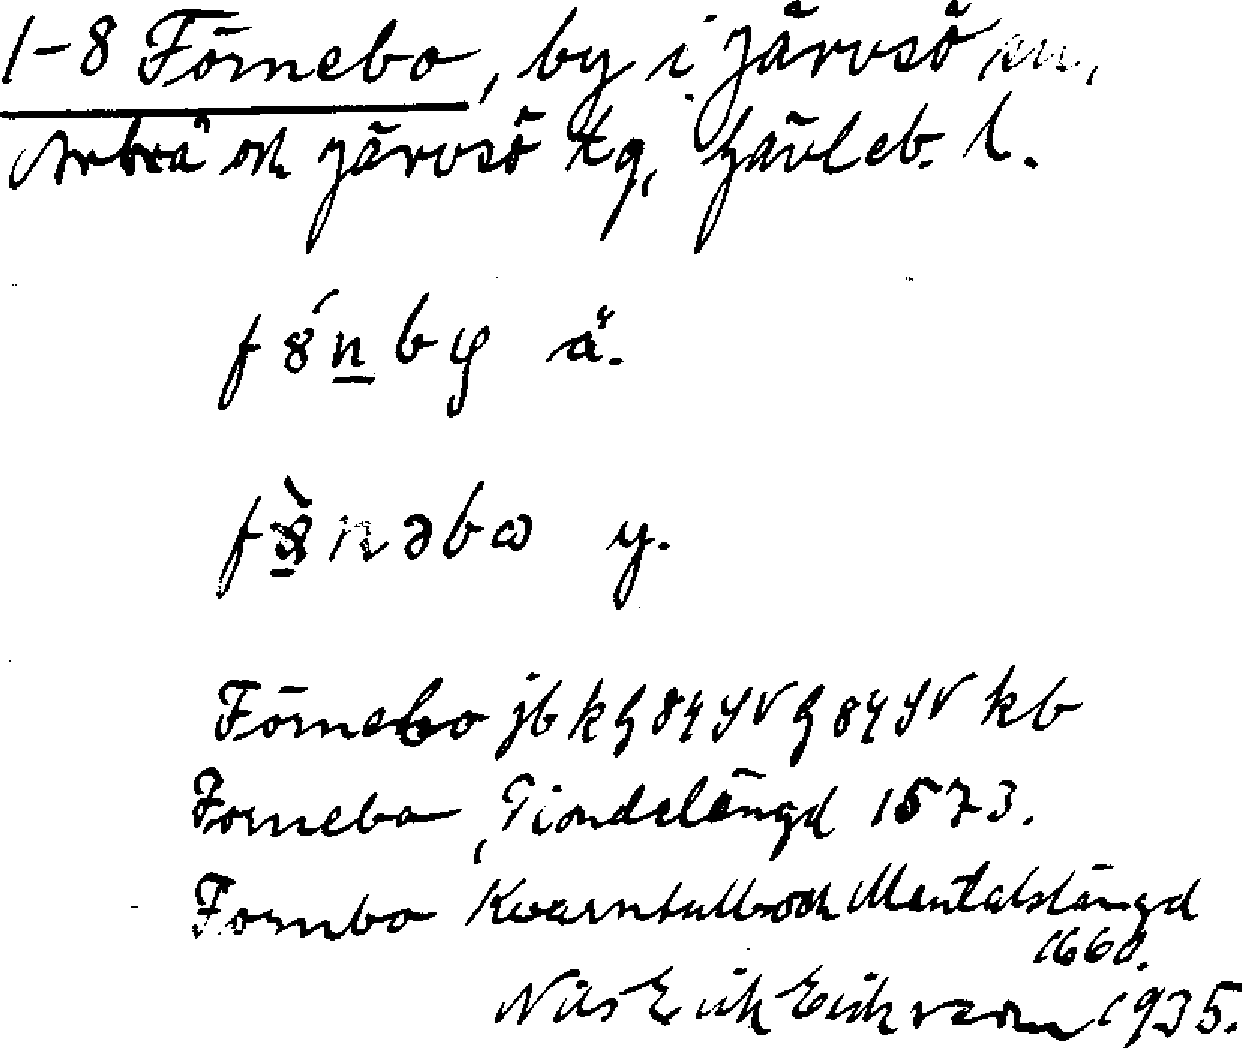 1-8 Förnebo, by i Järvsö sn,
Arbrå och Järvsö tg, Gävleb. l.
fȣ́n̲by ä.
fȣ̲̀nəbω y.
Förnebo jb kg 84 y V g 84 y V kb
Fornebo, Tiondelängd 1573.
Fornbo Kvarntull och Mantalslängd
1660.
Nils Erik Eriksson 1935.